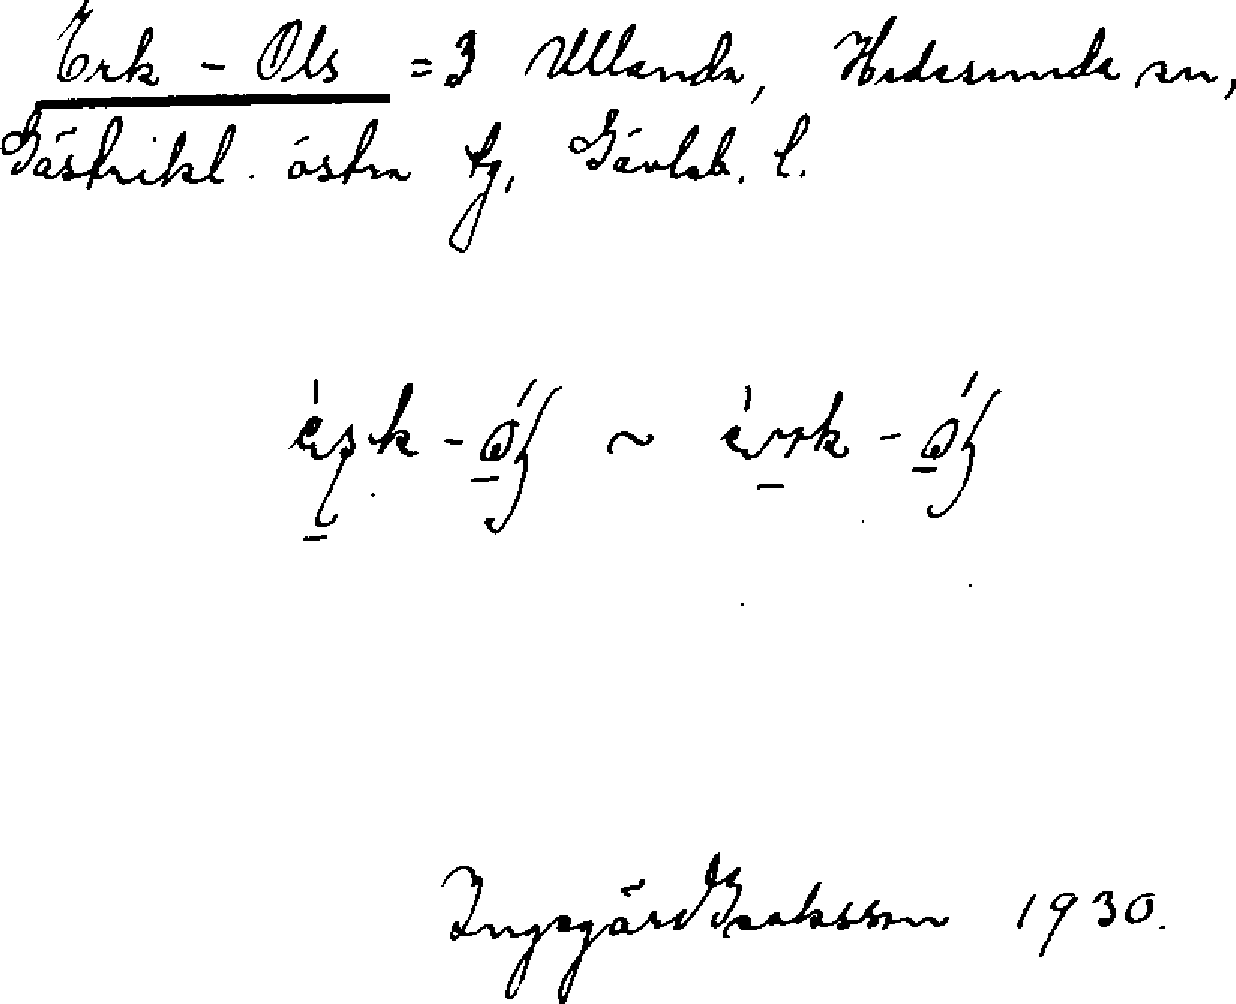 Erk - Ols = 3 Ullanda, Hedesunda sn,
Gästrikl. östra tg, Gävleb. l.
Ingegärd Isaksson 1930.